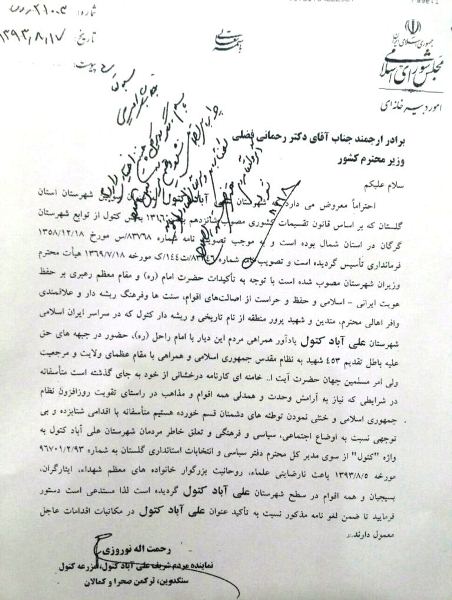 شماره: ۲۱۰۰۳
تاریخ ۱۳۹۳/۸/۱۷
پیوست:
جمهوری اسلامی ایران
مجلس شورای اسلامی
امور دبیرخانه‌ای
برادر ارجمند جناب آقای دکتر رحمانی فضلی
وزیر محترم کشور
سلام علیکم
احتراماً معروض می دارد شهرستان علی آباد کتول شهرستان استان
گلستان که بر اساس قانون تقسیمات کشوری مصوب شانزدهم کتول از توابع شهرستان
گرگان در استان شمال بوده است و به موجب تصویب نامه شماره ۸۳۷۶۸/س مورخ ۱۳۵۸/۱۲/۱۸
فرمانداری تأسیس گردیده است و تصویب نامه شماره مورخه ۱۳۶۹/۷/۱۸ هیأت محترم
وزیران مصوب شده است با توجه به تأکیدات حضرت امام (ره) و مقام معظم رهبری بر حفظ
هویت ایرانی - اسلامی و حفظ و حراست از اصالت‌های اقوام، سنت ها وفرهنگ ریشه دار و علاقمندی
وافر اهالی محترم، متدین و شهید پرور منطقه از نام تاریخی و ریشه دار کتول که در سراسر ایران اسلامی
شهرستان علی آباد کتول یادآور همراهی مردم این دیار با امام راحل (ره)، حضور در جبهه های حق
علیه باطل تقدیم ۴۵۳ شهید به نظام مقدس جمهوری اسلامی و همراهی با مقام عظمای ولایت و مرجعیت
ولی امر مسلمین جهان حضرت آیت ا.. خامنه ای کارنامه درخشانی از خود به جای گذشته است متأسفانه
در شرایطی که نیاز به آرامش وحدت و همدلی همه اقوام و مذاهب در راستای تقویت روزافزون نظام
جمهوری اسلامی و خنثی نمودن توطئه های دشمنان قسم خورده هستیم متأسفانه با اقدامی شتابزده و بی
توجهی نسبت به اوضاع اجتماعی، سیاسی و فرهنگی و تعلق خاطر مردمان شهرستان علی آباد کتول به
واژه "کتول" از سوی مدیر کل محترم دفتر سیاسی و انتخابات استانداری گلستان به شماره ۹۶۷۰۱/۲/۹۳
مورخه ۱۳۹۳/۸/۵ باعث نارضایتی علماء، روحانیت بزرگوار خانواده های معظم شهداء، ایثارگران،
بسیجیان و همه اقوام در سطح شهرستان علی آباد کتول گردیده است لذا مستدعی است دستور
فرمایید تا ضمن لغو نامه مذکور نسبت به تأکید عنوان علی آباد کتول در مکاتبات اقدامات عاجل
معمول دارند.
رحمت اله نوروزی
نماینده مردم شریف علی آباد کتول، مزرعه کتول
سنگدوین، ترکمن صحرا و کمالان